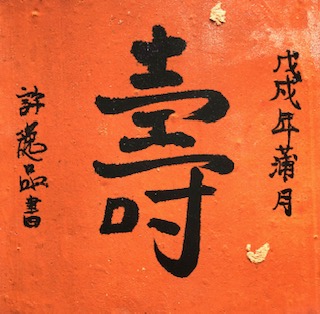 戊戌年蒲月
壽
許逸品書